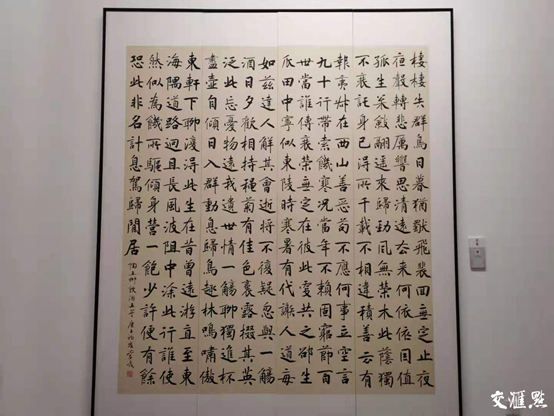 棲棲失群鳥日暮猶獨飛裴回無定止夜
夜聲轉悲厲響思清遠去來何依依因值
孤生松斂翮遙來歸勁風無榮木此蔭獨
不衰託身已得所千載不相違積善云有
報夷叔在西山善惡苟不應何事立空言
九十行帶索饑寒況當年不賴固窮節百
世當誰傳衰榮無定在彼此更共之邵生
瓜田中寧似東陵時寒暑有代謝人道每
如茲達人解其會逝將不復疑忽與一觴
酒日夕歡相持秋菊有佳色裛露掇其英
泛此忘憂物遠我遺世情一觴聊獨進杯
盡壺自傾日入群動息歸鳥趨林鳴嘯傲
東軒下聊復得此生在昔曾遠遊直至東
海隅道路迥且長風波阻中塗此行誰使
然似為饑所驅傾身營一飽少許便有餘
恐此非名計息駕歸閒居
陶五柳飲酒五首
交汇点